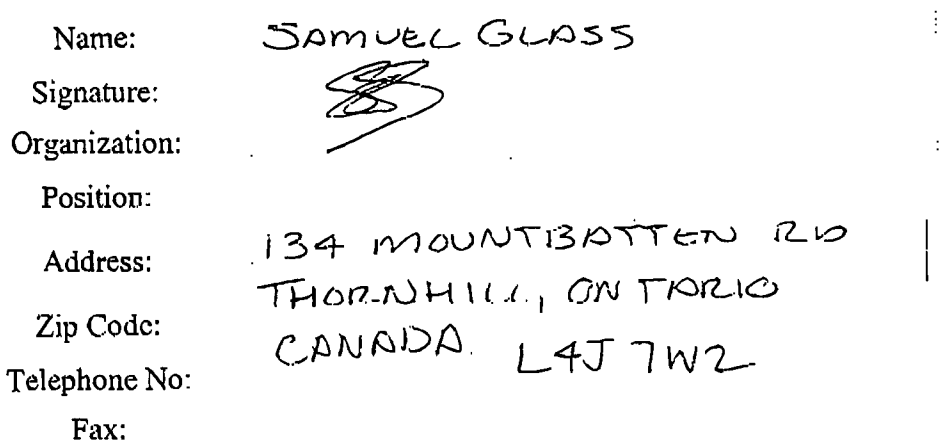 Name: SAMUEL GLASS
Signature:
Organization:
Position:
Address: 134 MOUNTBATTEN RD
THORNHILL, ONTARIO
Zip Code: CANADA. L4J 7W2
Telephone No:
Fax: